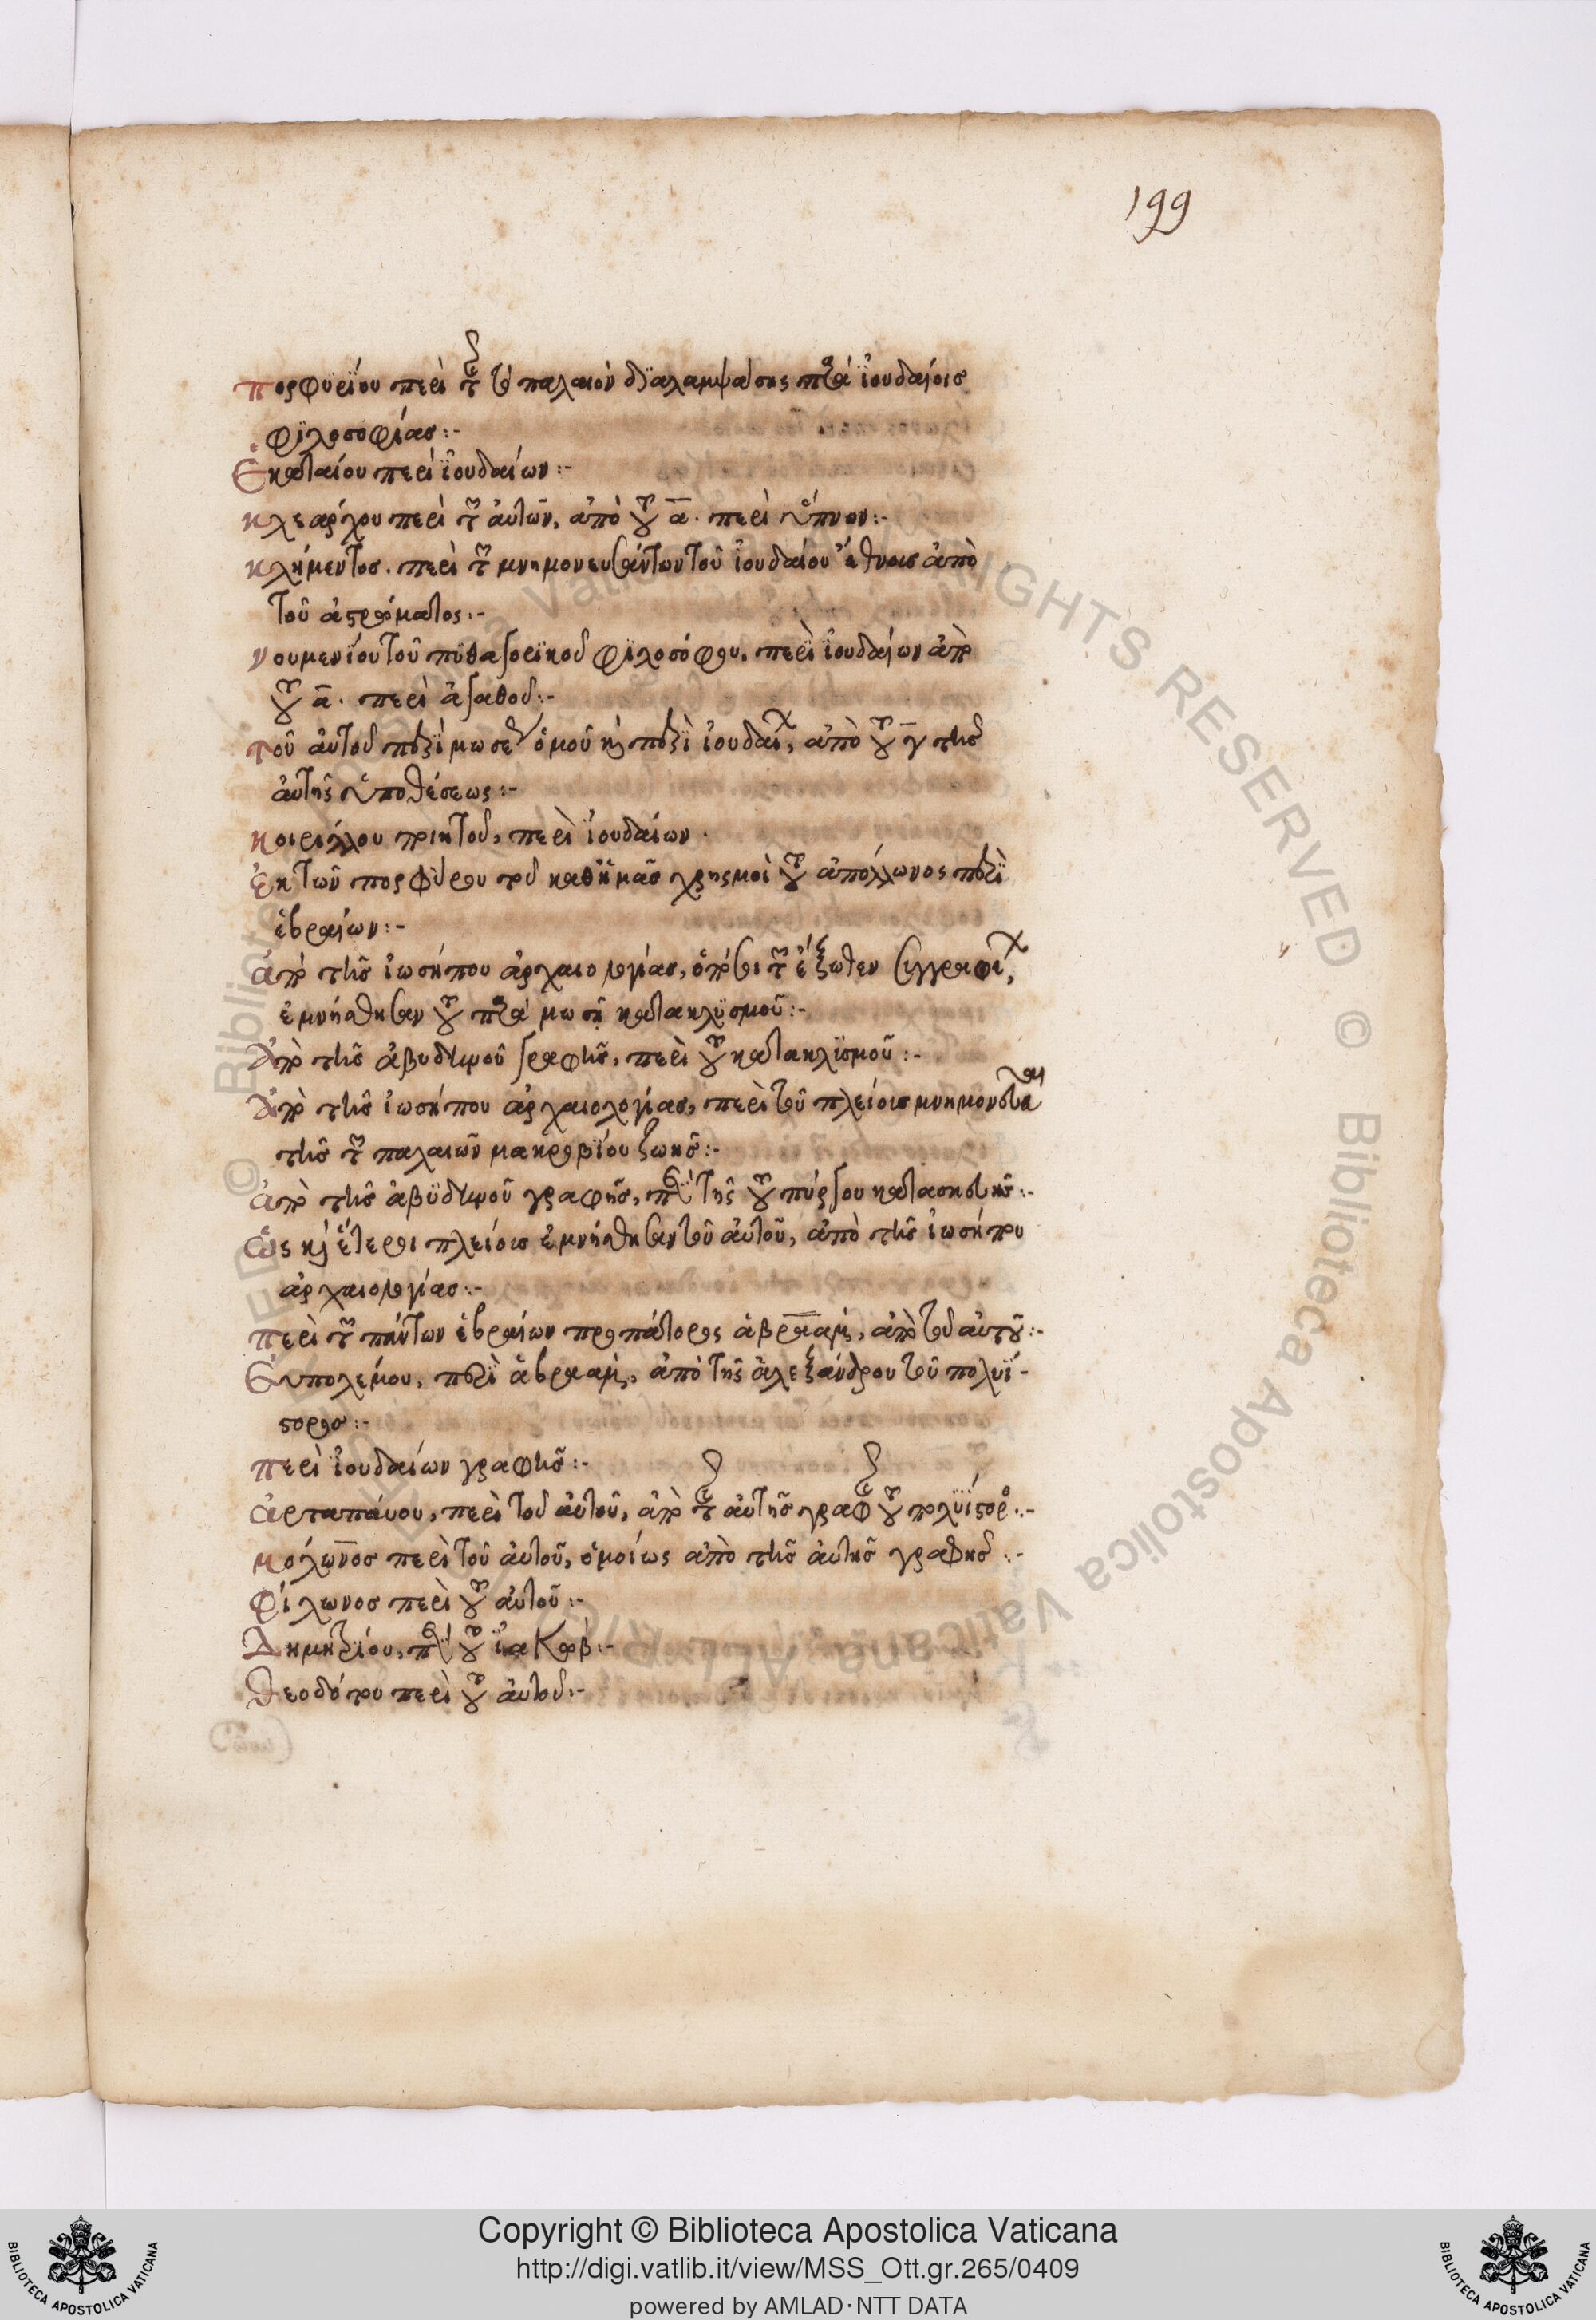 199
πορφυρίου περὶ τῆς τὸ παλαιὸν διαλαμψάσης παρὰ ἰουδαίοις
φιλοσοφίας:-
Ἑκαταίου περὶ ἰουδαίων:-
κλεάρχου περὶ τῶν αὐτῶν, ἀπὸ τοῦ α. περὶ ὕπνου:-
κλήμεντος. περὶ τῶν μνημονευσάντων τοῦ ἰουδαίου ἔθνους ἀπὸ
τοῦ α στρώματος:-
νουμενίου τοῦ πυθαγορικοῦ φιλοσόφου, περὶ ἰουδαίων ἀπὸ
τοῦ α. περὶ ἀγαθοῦ:-
τοῦ αὐτοῦ περὶ μωσέως ὁμοῦ καὶ περὶ ἰουδαίων, ἀπὸ τοῦ γ τῆς
αὐτῆς ὑποθέσεως:-
κοιρίλλου ποιητοῦ, περὶ ἰουδαίων.
ἐκ τῶν πορφύρου τοῦ καθ' ἡμᾶς χρησμοὶ τοῦ ἀπόλλωνος περὶ
ἑβραίων:-
ἀπὸ τῆς ἰωσήπου ἀρχαιολογίας, ὅσοι τῶν ἔξωθεν συγγραφέων,
ἐμνήσθησαν τοῦ παρὰ μωσῇ κατακλυσμοῦ:-
Ἀπὸ τῆς ἀβυδηνοῦ γραφῆς, περὶ τοῦ κατακλισμοῦ:-
Ἀπὸ τῆς ἰωσήπου ἀρχαιολογίας, περὶ τοῦ πλείοις μνημονεῦσαι
τῆς τῶν παλαιῶν μακροβίου ζωῆς:-
ἀπὸ τῆς ἀβυδηνοῦ γραφῆς, περὶ τῆς τοῦ πύργου κατασκευῆς:-
Ὡς καὶ ἕτεροι πλείοις ἐμνήσθησαν τοῦ αὐτοῦ, ἀπὸ τῆς ἰωσήπου
ἀρχαιολογίας:-
περὶ τῶν πάντων ἑβραίων προπάτορος ἀβραάμ, ἀπὸ τοῦ αὐτοῦ:-
Εὐπολέμου, περὶ ἀβραάμ, ἀπὸ τῆς ἀλεξάνδρου τοῦ πολυΐ-
στορος:-
περὶ ἰουδαίων γραφῆς:-
ἀρταπάνου, περὶ τοῦ αὐτοῦ, ἀπὸ τῆς αὐτῆς γραφῆς τοῦ πολυίστορος:-
μόλωνος περὶ τοῦ αὐτοῦ, ὁμοίως ἀπὸ τῆς αὐτῆς γραφῆς:-
Φίλωνος περὶ τοῦ αὐτοῦ:-
Δημητρίου, περὶ τοῦ ἰακώβ:-
Θεοδότου περὶ τοῦ αὐτοῦ:-
© Biblioteca Apostolica Vaticana ALL RIGHTS RESERVED
Copyright © Biblioteca Apostolica Vaticana
http://digi.vatlib.it/view/MSS_Ott.gr.265/0409
powered by AMLAD·NTT DATA
BIBLIOTECA APOSTOLICA VATICANA
BIBLIOTECA APOSTOLICA VATICANA